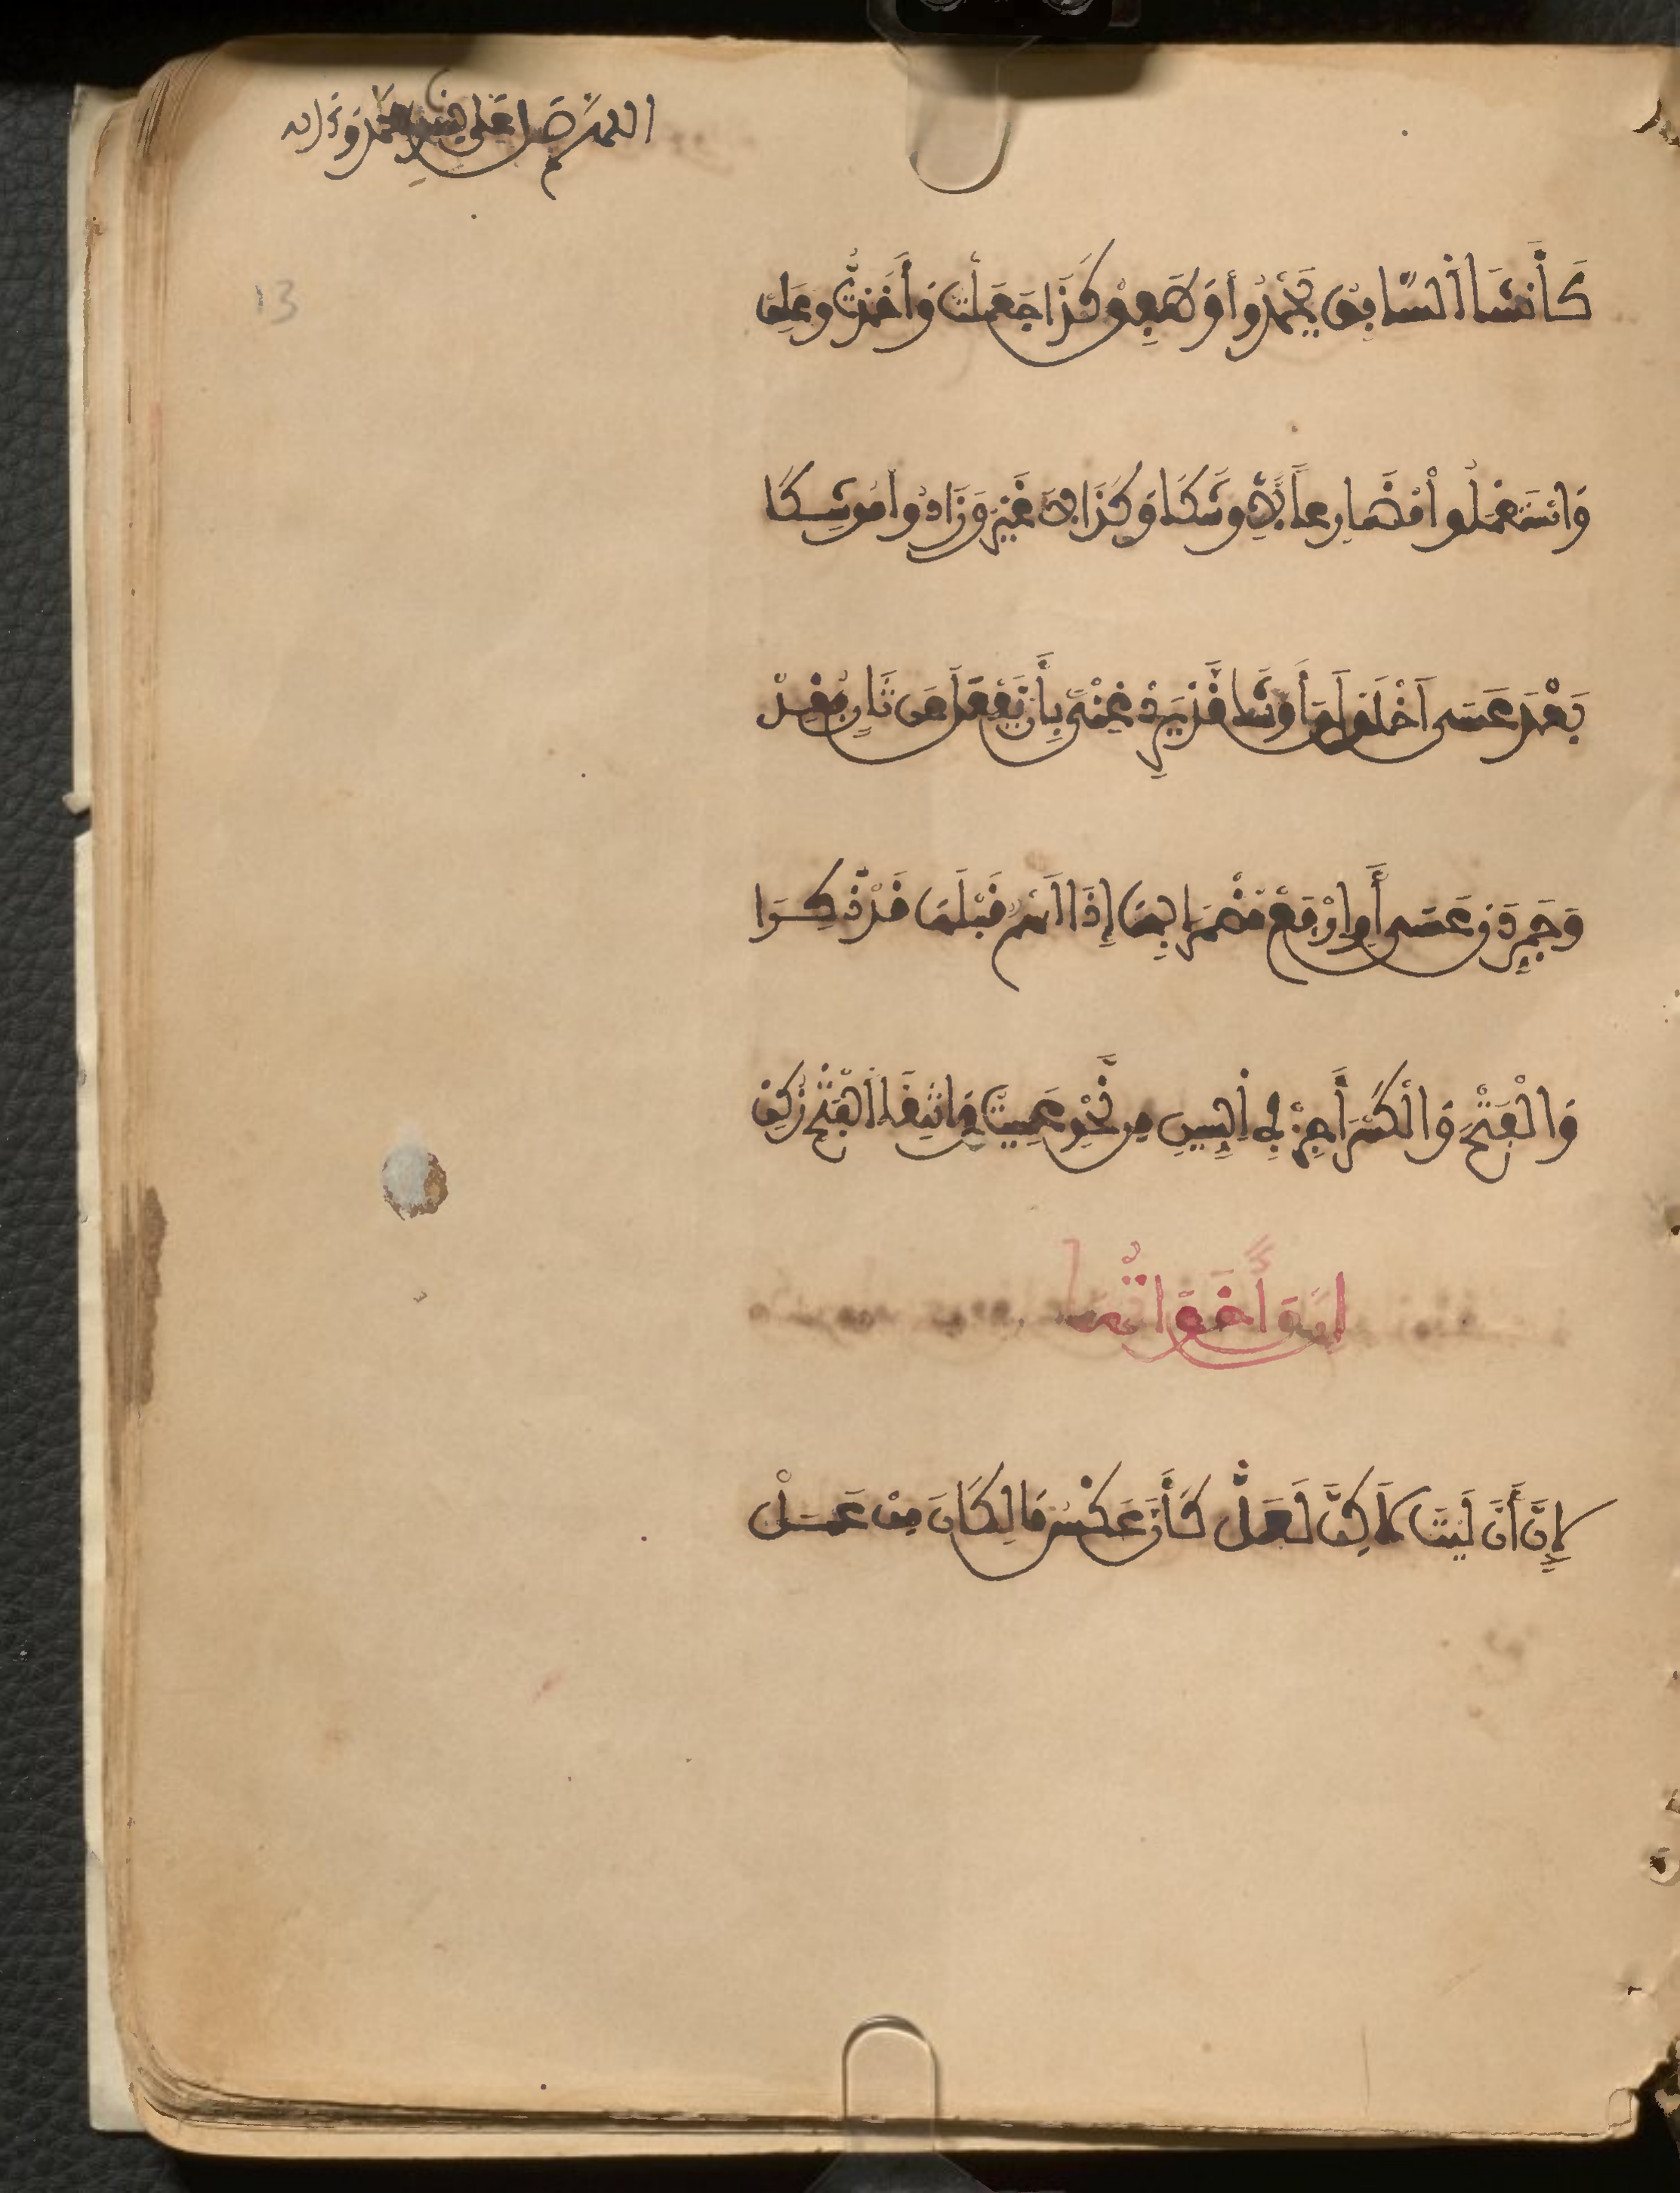 اللهم صل على سيدنا محمد وءاله
13
كَأَنْشَأَ السَّابِقُ يَحْدُو وَطَفِقْ كَذَا جَعَلْتُ وَأَخَذْتُ وَعَلِقْ
وَاسْتَعْمَلُوا مُضَارِعًا لِأَوْشَكَا وَكَادَ لَا غَيْرُ وَزَادُوا مُوشِكَا
بَعْدَ عَسَى اخْلَوْلَقَ أَوْشَكْ قَدْ يَرِدْ غِنًى بِأَنْ يَفْعَلَ عَنْ ثَانٍ فُقِدْ
وَجَرِّدَنْ عَسَى أَوِ ارْفَعْ مُضْمَرَا بِهَا إِذَا اسْمٌ قَبْلَهَا قَدْ ذُكِرَا
وَالْفَتْحَ وَالْكَسْرَ أَجِزْ فِي السِّينِ مِنْ نَحْوِ عَسَيْتُ وَانْتِقَا الْفَتْحِ زُكِنْ
إِنَّ وَأَخَوَاتُهَا
لِإِنَّ أَنَّ لَيْتَ لَكِنَّ لَعَلْ كَأَنَّ عَكْسُ مَا لِكَانَ مِنْ عَمَلْ